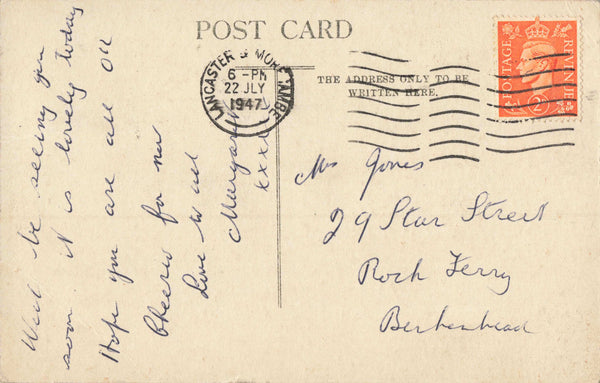 POST CARD
THE ADDRESS ONLY TO BE
WRITTEN HERE.
LANCASTER & MORECAMBE
6 - PM
22 JLY
1947
POSTAGE
REVENUE
2D
Well be seeing you
soon it is lovely today
Hope you are all OK
Cheerio for now
Love to all
Margaret
xxxx
Mrs Jones
29 Star Street
Rock Ferry
Berkenhead